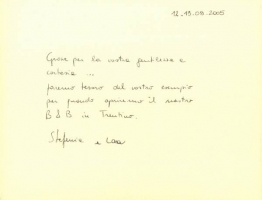 12-13.08.2005
Grazie per la vostra gentilezza e
cortesia ...
faremo tesoro del vostro esempio
per quando apriremo il nostro
B&B in Trentino.
Stefania e Luca